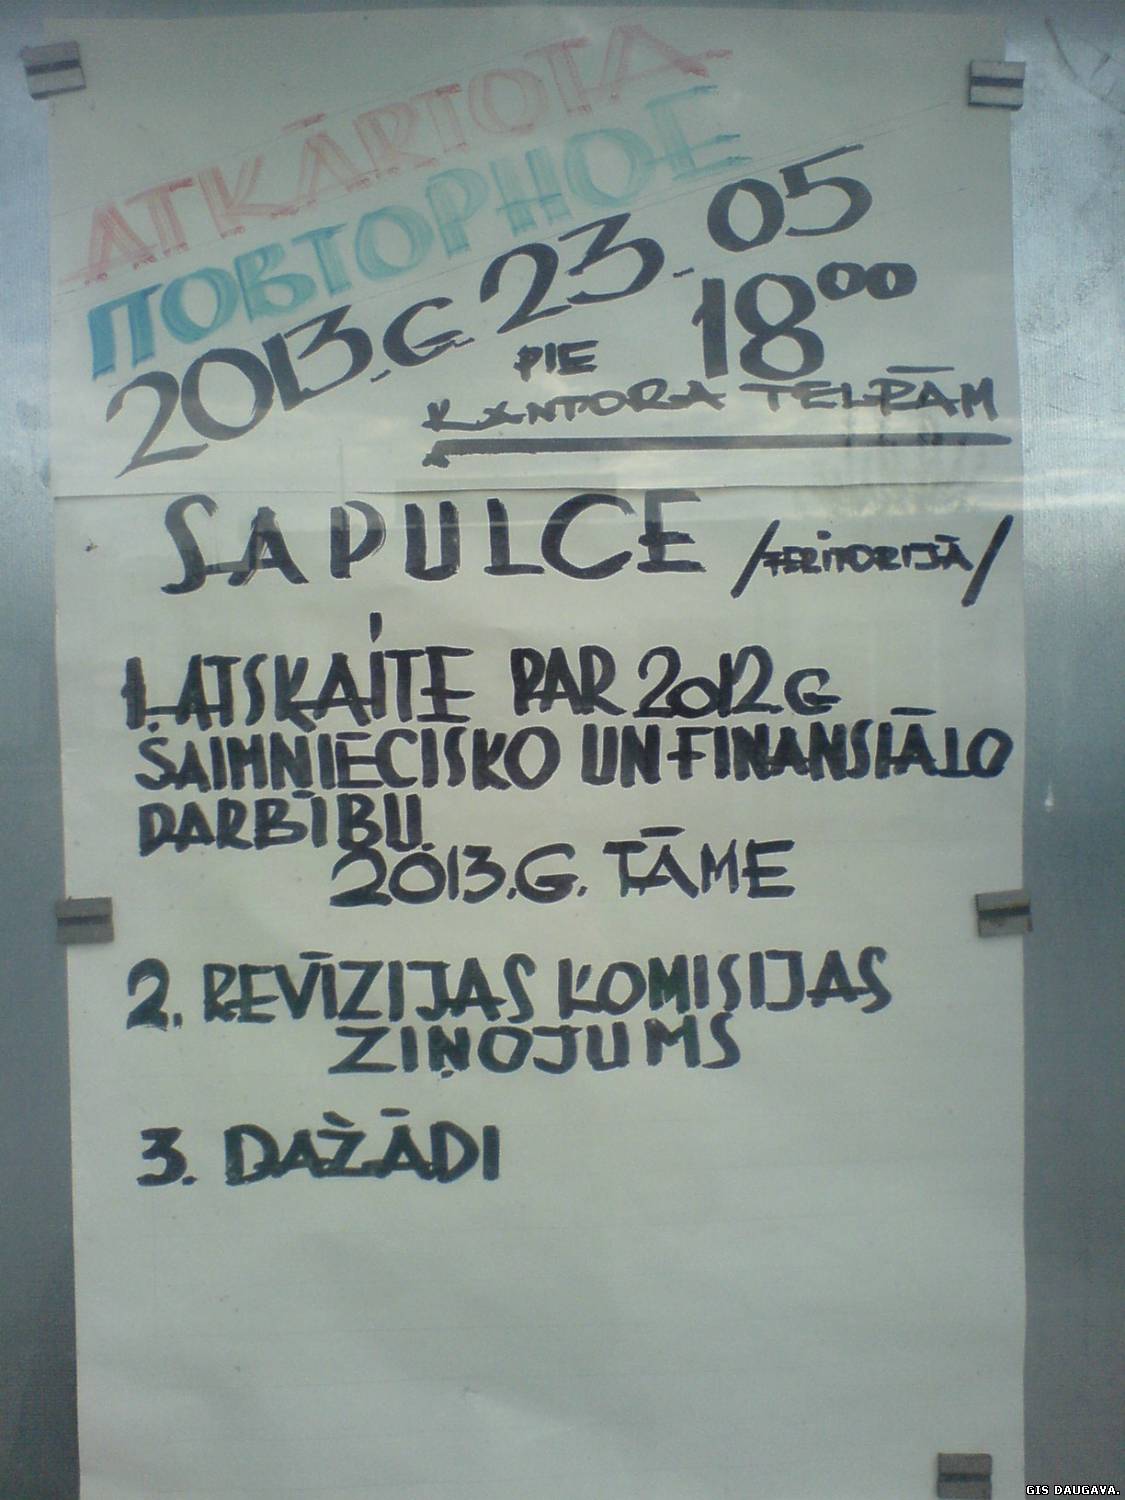 ATKĀRTOTA
ПОВТОРНОЕ
2013.G. 23.05
PIE 18⁰⁰
KANTORA TELPĀM
SAPULCE /TERITORIJĀ/
1. ATSKAITE PAR 2012.G
SAIMNIECISKO UN FINANSIĀLO
DARBĪBU.
2013.G. TĀME
2. REVĪZIJAS KOMISIJAS
ZIŅOJUMS
3. DAŽĀDI
GIS DAUGAVA.